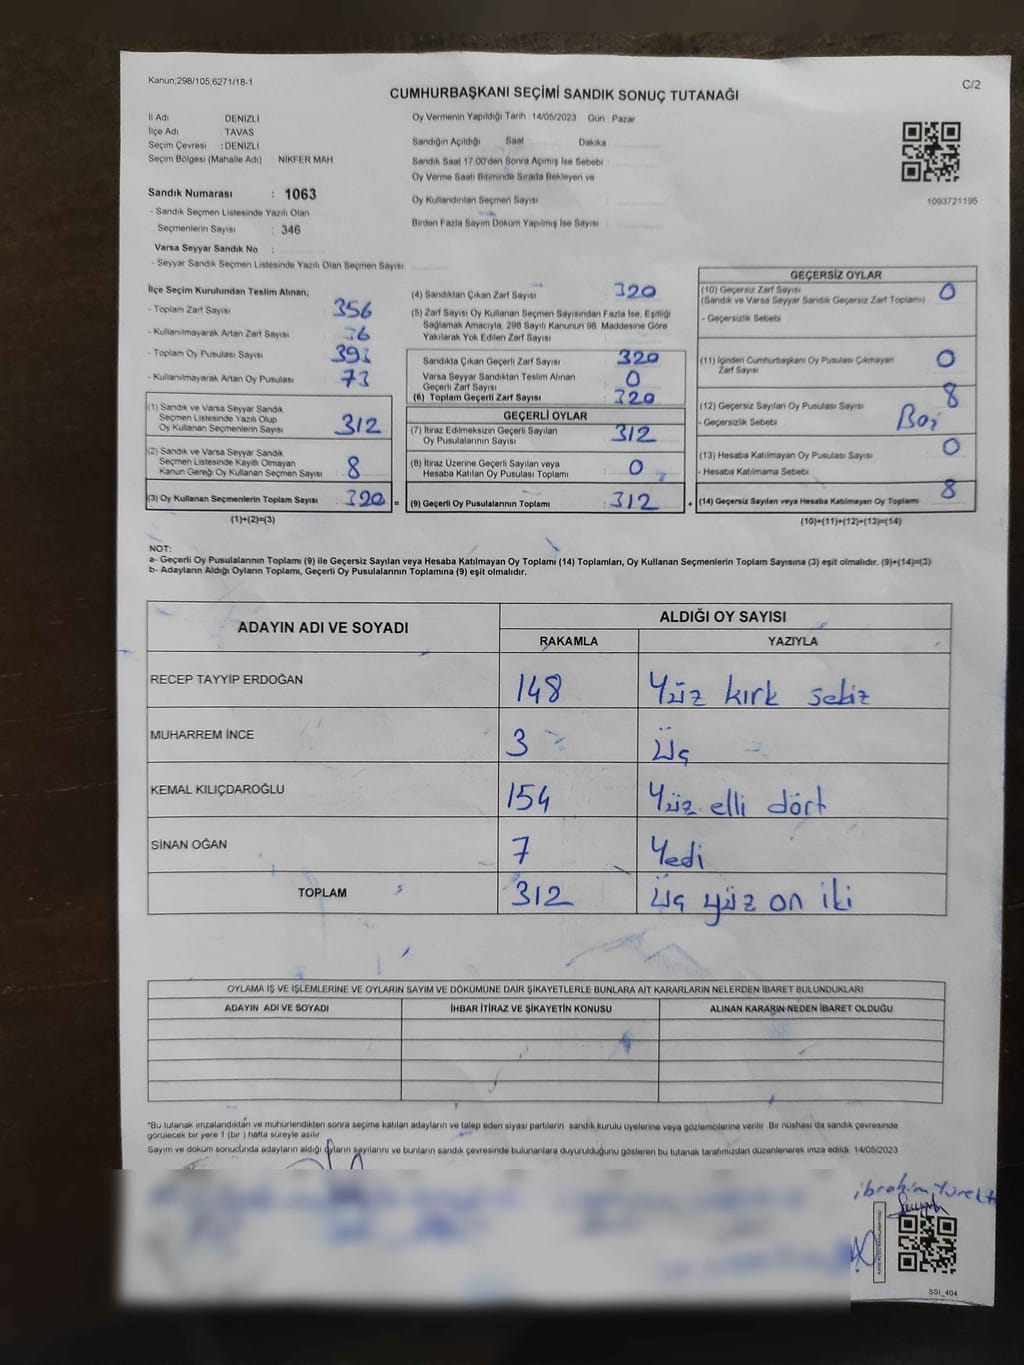 Kanun;298/105,6271/18-1
C/2
CUMHURBAŞKANI SEÇİMİ SANDIK SONUÇ TUTANAĞI
İl Adı DENİZLİ
İlçe Adı TAVAS
Seçim Çevresi : DENİZLİ
Seçim Bölgesi (Mahalle Adı) : NİKFER MAH
Sandık Numarası : 1063
- Sandık Seçmen Listesinde Yazılı Olan
Seçmenlerin Sayısı : 346
Varsa Seyyar Sandık No :
- Seyyar Sandık Seçmen Listesinde Yazılı Olan Seçmen Sayısı:
Oy Vermenin Yapıldığı Tarih :14/05/2023 Gün : Pazar
Sandığın Açıldığı Saat Dakika
Sandık Saat 17.00'den Sonra Açılmış İse Sebebi :
Oy Verme Saati Bitiminde Sırada Bekleyen ve
Oy Kullandırılan Seçmen Sayısı :
Birden Fazla Sayım Döküm Yapılmış İse Sayısı :
1093721195
İlçe Seçim Kurulundan Teslim Alınan;
- Toplam Zarf Sayısı : 356
- Kullanılmayarak Artan Zarf Sayısı : 36
- Toplam Oy Pusulası Sayısı : 393
- Kullanılmayarak Artan Oy Pusulası : 73
(1) Sandık ve Varsa Seyyar Sandık
Seçmen Listesinde Yazılı Olup
Oy Kullanan Seçmenlerin Sayısı : 312
(2) Sandık ve Varsa Seyyar Sandık
Seçmen Listesinde Kayıtlı Olmayan
Kanun Gereği Oy Kullanan Seçmen Sayısı : 8
(3) Oy Kullanan Seçmenlerin Toplam Sayısı : 320 =
(1)+(2)=(3)
(4) Sandıktan Çıkan Zarf Sayısı : 320
(5) Zarf Sayısı Oy Kullanan Seçmen Sayısından Fazla İse, Eşitliği
Sağlamak Amacıyla, 298 Sayılı Kanunun 98. Maddesine Göre
Yakılarak Yok Edilen Zarf Sayısı :
Sandıkta Çıkan Geçerli Zarf Sayısı : 320
Varsa Seyyar Sandıktan Teslim Alınan
Geçerli Zarf Sayısı : 0
(6) Toplam Geçerli Zarf Sayısı : 320
GEÇERLİ OYLAR
(7) İtiraz Edilmeksizin Geçerli Sayılan
Oy Pusulalarının Sayısı : 312
(8) İtiraz Üzerine Geçerli Sayılan veya
Hesaba Katılan Oy Pusulası Toplamı : 0
(9) Geçerli Oy Pusulalarının Toplamı : 312 +
GEÇERSİZ OYLAR
(10) Geçersiz Zarf Sayısı : 0
(Sandık ve Varsa Seyyar Sandık Geçersiz Zarf Toplamı)
- Geçersizlik Sebebi :
(11) İçinden Cumhurbaşkanı Oy Pusulası Çıkmayan
Zarf Sayısı : 0
(12) Geçersiz Sayılan Oy Pusulası Sayısı : 8
- Geçersizlik Sebebi : Boş
(13) Hesaba Katılmayan Oy Pusulası Sayısı : 0
- Hesaba Katılmama Sebebi :
(14) Geçersiz Sayılan veya Hesaba Katılmayan Oy Toplamı : 8
(10)+(11)+(12)+(13)=(14)
NOT:
a- Geçerli Oy Pusulalarının Toplamı (9) ile Geçersiz Sayılan veya Hesaba Katılmayan Oy Toplamı (14) Toplamları, Oy Kullanan Seçmenlerin Toplam Sayısına (3) eşit olmalıdır. (9)+(14)=(3)
b- Adayların Aldığı Oyların Toplamı, Geçerli Oy Pusulalarının Toplamına (9) eşit olmalıdır.
ADAYIN ADI VE SOYADI ALDIĞI OY SAYISI
RAKAMLA YAZIYLA
RECEP TAYYİP ERDOĞAN 148 Yüz kırk sekiz
MUHARREM İNCE 3 Üç
KEMAL KILIÇDAROĞLU 154 Yüz elli dört
SİNAN OĞAN 7 Yedi
TOPLAM 312 Üç yüz on iki
OYLAMA İŞ VE İŞLEMLERİNE VE OYLARIN SAYIM VE DÖKÜMÜNE DAİR ŞİKAYETLERLE BUNLARA AİT KARARLARIN NELERDEN İBARET BULUNDUKLARI
ADAYIN ADI VE SOYADI İHBAR İTİRAZ VE ŞİKAYETİN KONUSU ALINAN KARARIN NEDEN İBARET OLDUĞU
*Bu tutanak imzalandıktan ve mühürlendikten sonra seçime katılan adayların ve talep eden siyasi partilerin sandık kurulu üyelerine veya gözlemcilerine verilir. Bir nüshası da sandık çevresinde
görülecek bir yere 1 (bir ) hafta süreyle asılır.
Sayım ve döküm sonucunda adayların aldığı oyların sayılarını ve bunların sandık çevresinde bulunanlara duyurulduğunu gösteren bu tutanak tarafımızdan düzenlenerek imza edildi. 14/05/2023
ibrahim
SSI_404